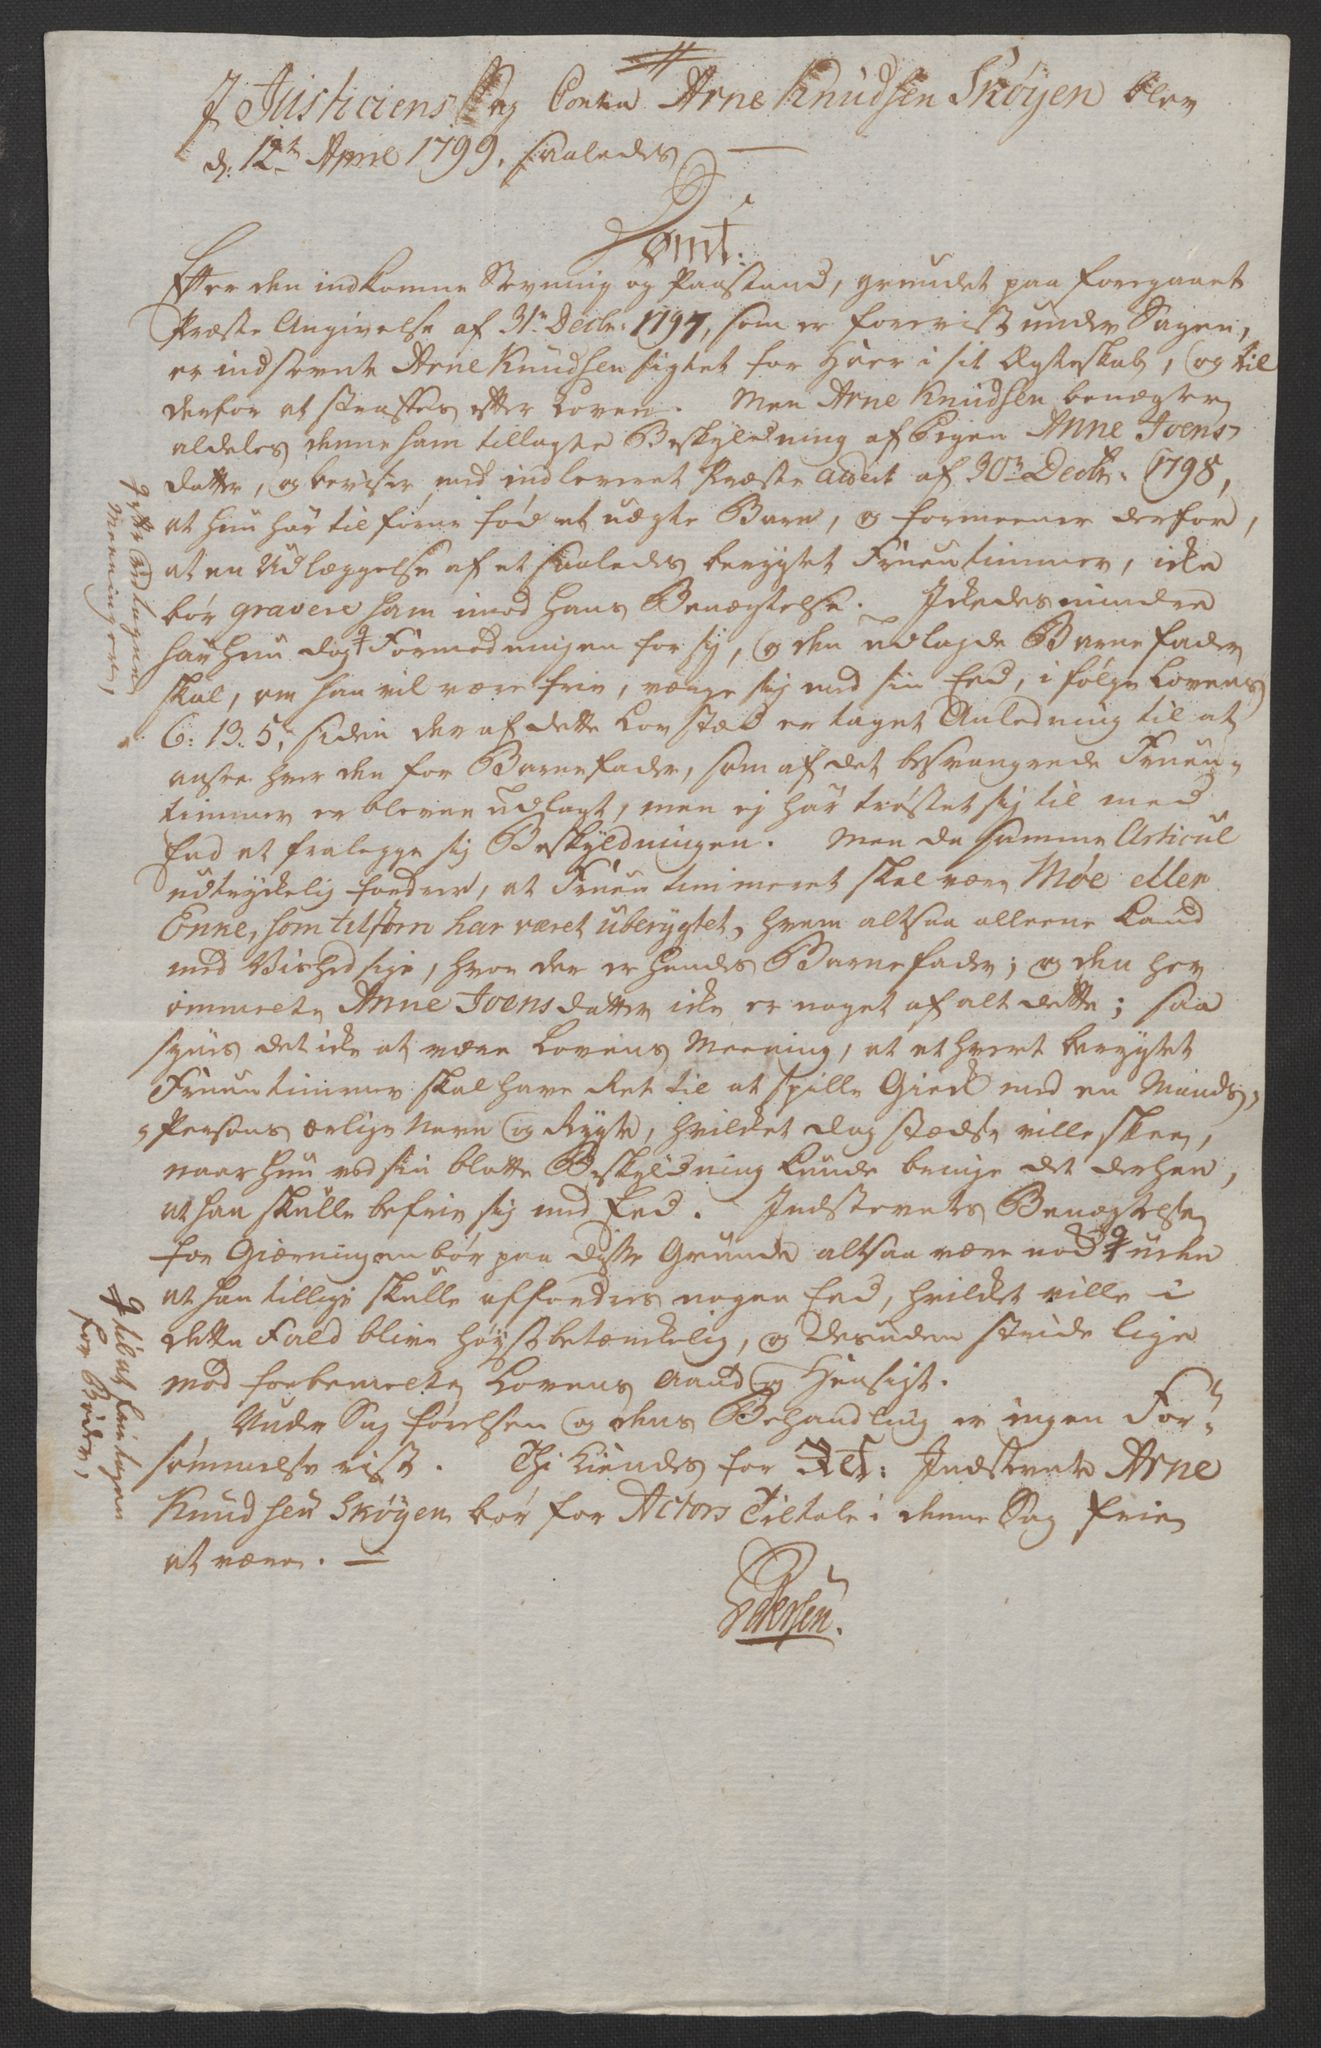 J Justiciens Sag Contra Arne Knudsen Skøyen blev
d: 12te April 1799, saaledes
Dømt:
Efter den indkomne Stevning og Paastand, grundet paa foregaaet
Præste Angivelse af 31te Decbr: 1797, som er forevist under Sagen,
er indstevnte Arne Knudsen sigtet for Hoer i sit Ægteskab, og til
derfor at straffes efter Loven. Men Arne Knudsen benægter
aldeles denne ham tillagte Beskyldning af Pigen Anne Joens-
datter, og beviser med indleveret Præste Attest af 30te Decbr: 1798,
at hun har tilforn fød et uægte Barn, og formeener derfor,
at en Udlæggelse af et saaledes berygtet Fruentimmer, ikke
bør gravere ham imod hans Benægtelse. Ikkedesmindre
har hun dog Formodningen for sig, og den udlagde Barnefader
skal, om han vil være frie, værge sig med sin Eed, i følge Lovens
6: 13. 5, siden der af dette Lov stæd er taget Anledning til at
ansee hver den for Barnefader, som af det besvangrede Fruen-
timmer er bleven udlagt, men ej har trøstet sig til med
Eed at fralegge sig Beskyldningen. Men da samme Articul
udtrykkelig fordrer, at Fruentimmeret skal være Møe eller
Enke, som tilforn har været uberygtet, hvem altsaa alleene kand
med Vished sige, hvor der er hendes Barnefader; og den her
ommeldte Anne Joensdatter ikke er noget af alt dette; saa
synes det ikke at være Lovens Meening, at ethvert berygtet
Fruentimmer skal have Ret til at spille Giek med en Mands-
Persons ærlige Navn og Rygte, hvilket dog stædse ville skee,
naar hun ved sin blotte Beskyldning kunde bringe det derhen,
at han skulle befrie sig med Eed. Indstevntes Benægtelse
for Giærningen bør paa disse Grunde altsaa være nok uden
at han tillige skulle affordres nogen Eed, hvilket ville i
dette Fald blive høyst betænkelig, og desuden stride lige
mod forbemeldte Lovens Aand og Hensigt.
Under Sag førelsen og dens Behandling er ingen For-
sømmelse vist. Thi kiendes for Ret: Indstevnte Arne
Knudsen Skøyen bør for Actors Tiltale i denne Sag frie
at være.
Pedersen.
efter Lovlugens
Meeningen,
til at fritagen
for Bøder,